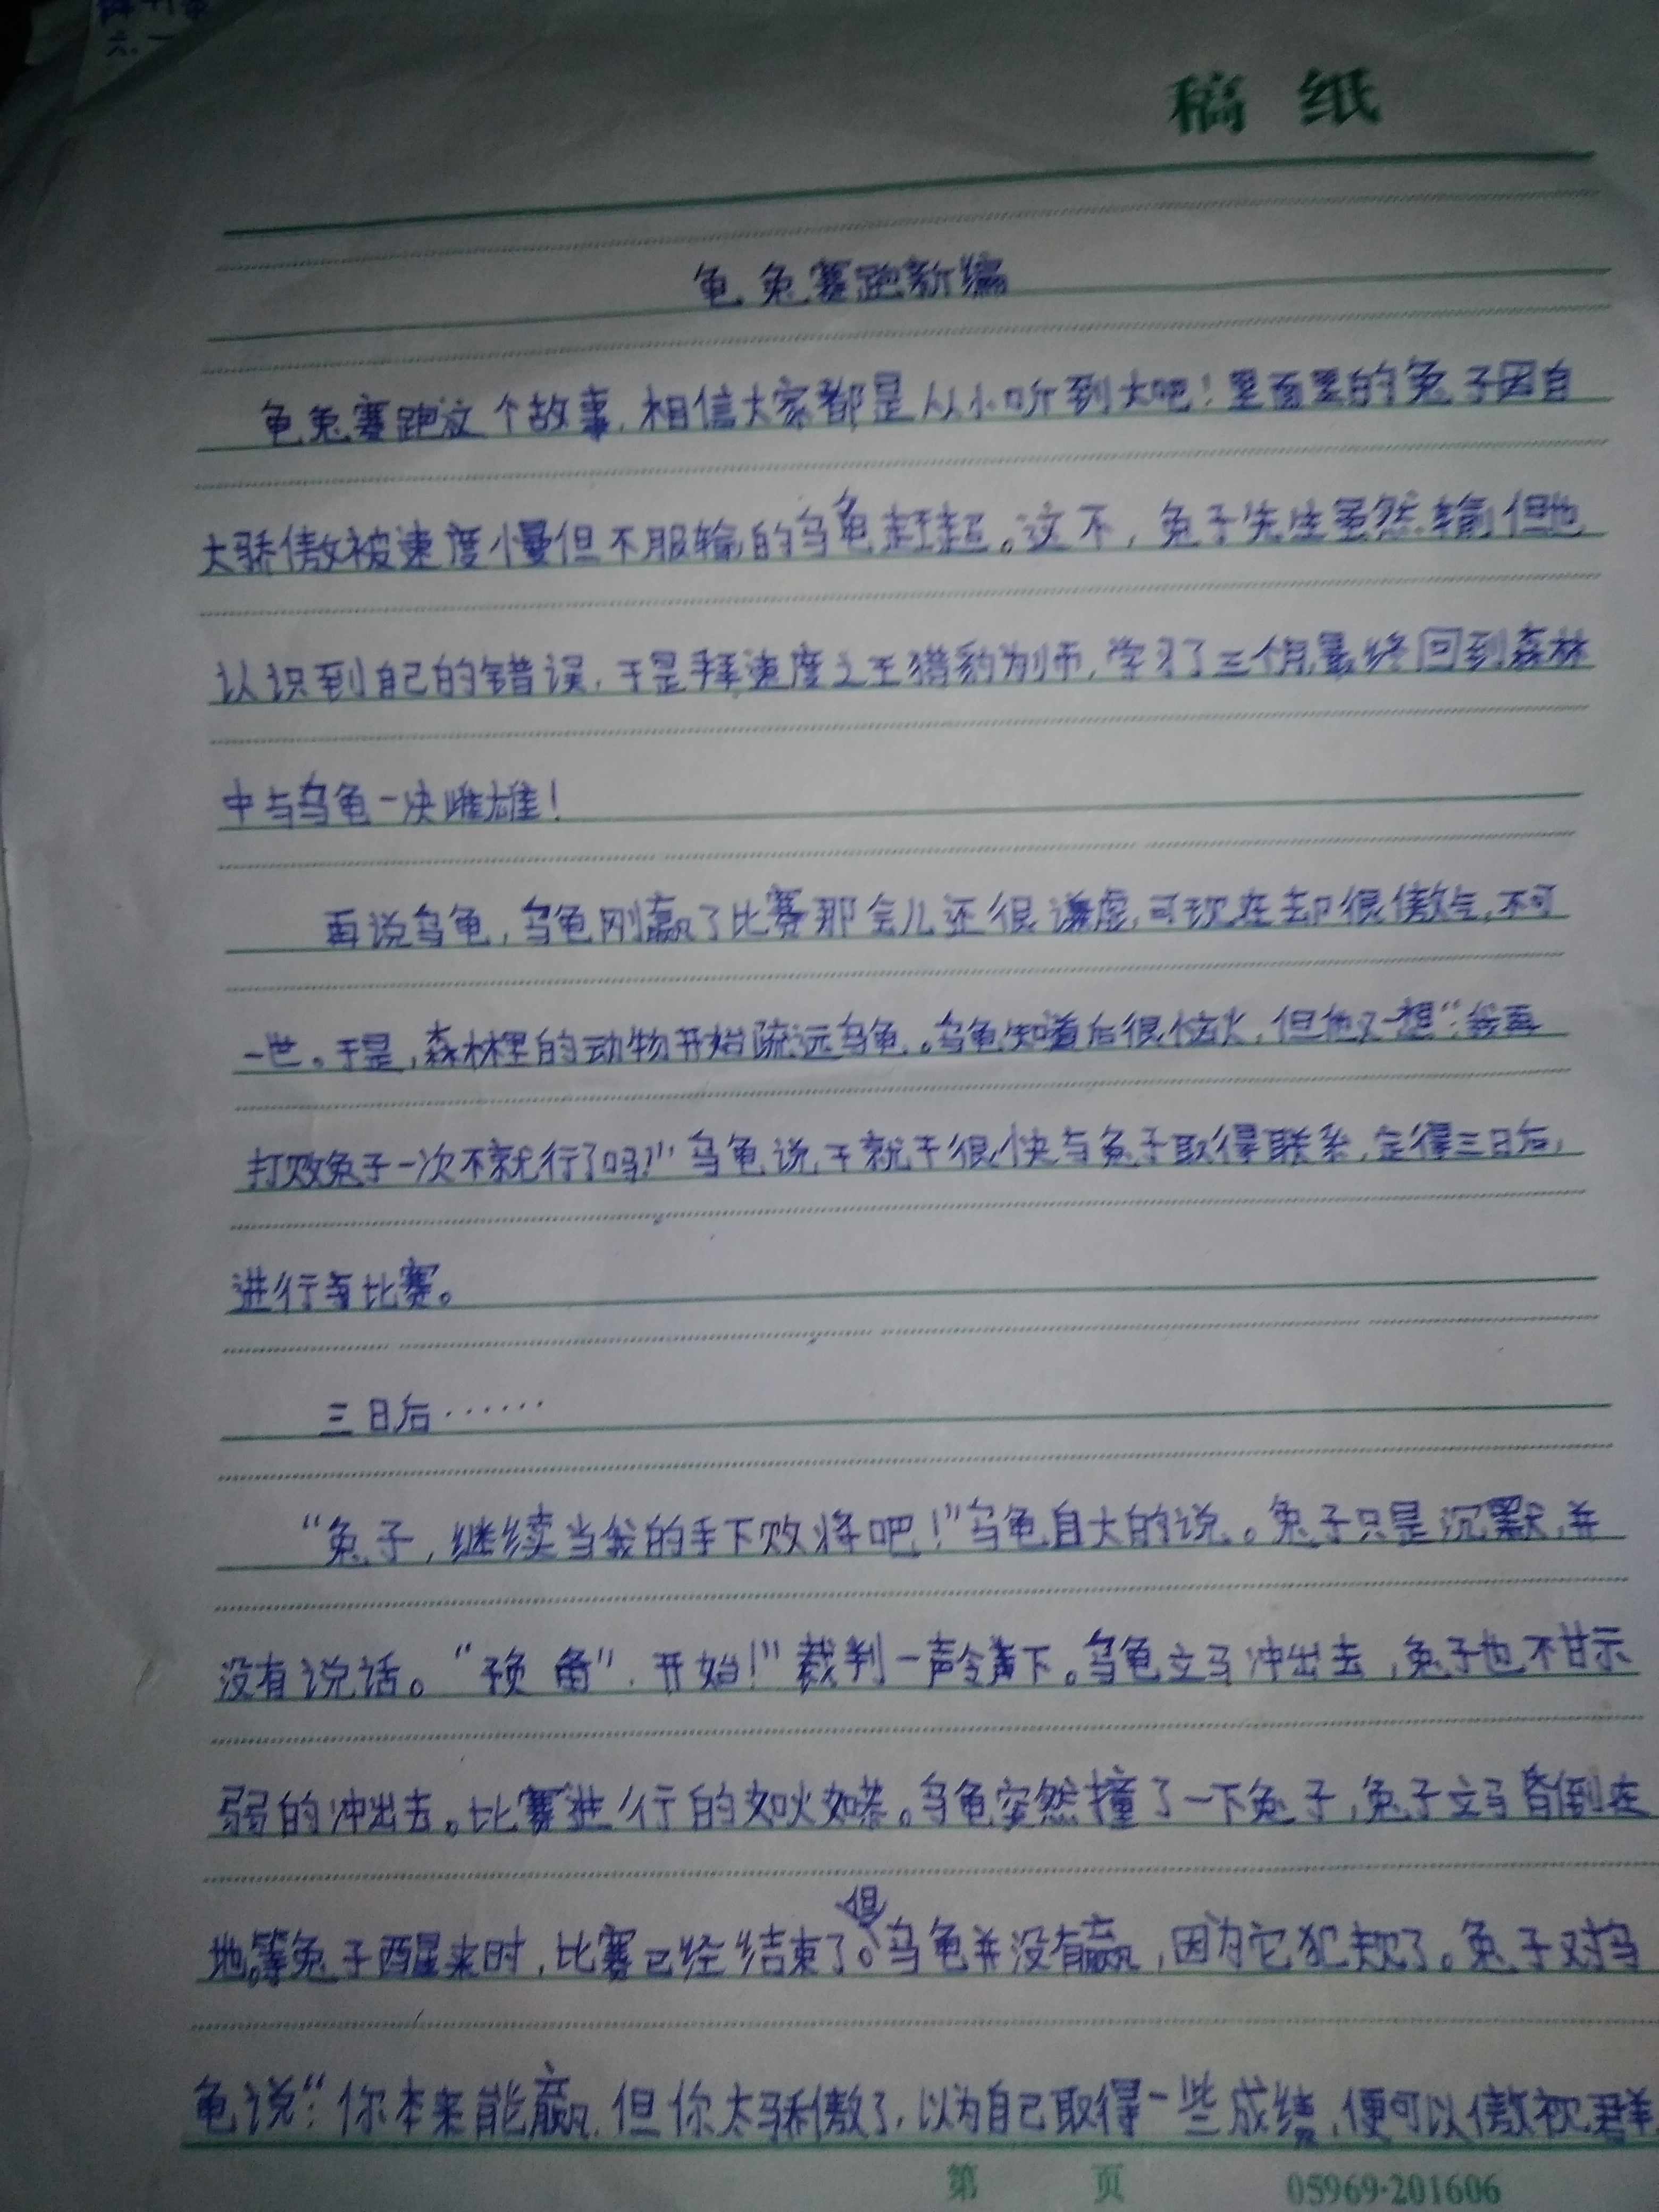 稿纸
龟兔赛跑新编
龟兔赛跑这个故事,相信大家都是从小听到大吧!里面里的兔子因自
大骄傲被速度慢但不服输的乌龟赶超。这不,兔子先生虽然输但他
认识到自己的错误,于是拜速度之王猎豹为师,学习了三个月最终回到森林
中与乌龟一决雌雄!
再说乌龟,乌龟刚赢了比赛那会儿还很谦虚,可现在却很傲气,不可
一世。于是,森林里的动物开始疏远乌龟。乌龟知道后很恼火,但他又一想“:我再
打败兔子一次不就行了吗!”乌龟说干就干很快与兔子取得联系,定得三日后,
进行比赛。
三日后……
“兔子,继续当我的手下败将吧!”乌龟自大的说。兔子只是沉默,并
没有说话。“预备”,开始!”裁判一声令下。乌龟立马冲出去,兔子也不甘示
弱的冲出去。比赛进行的如火如荼。乌龟突然撞了一下兔子,兔子立马昏倒在
地。等兔子醒来时,比赛已经结束了。但乌龟并没有赢,因为它犯规了。兔子对乌
龟说“:你本来能赢,但你太骄傲了,以为自己取得一些成绩,便可以傲视群
第 页 05969·201606